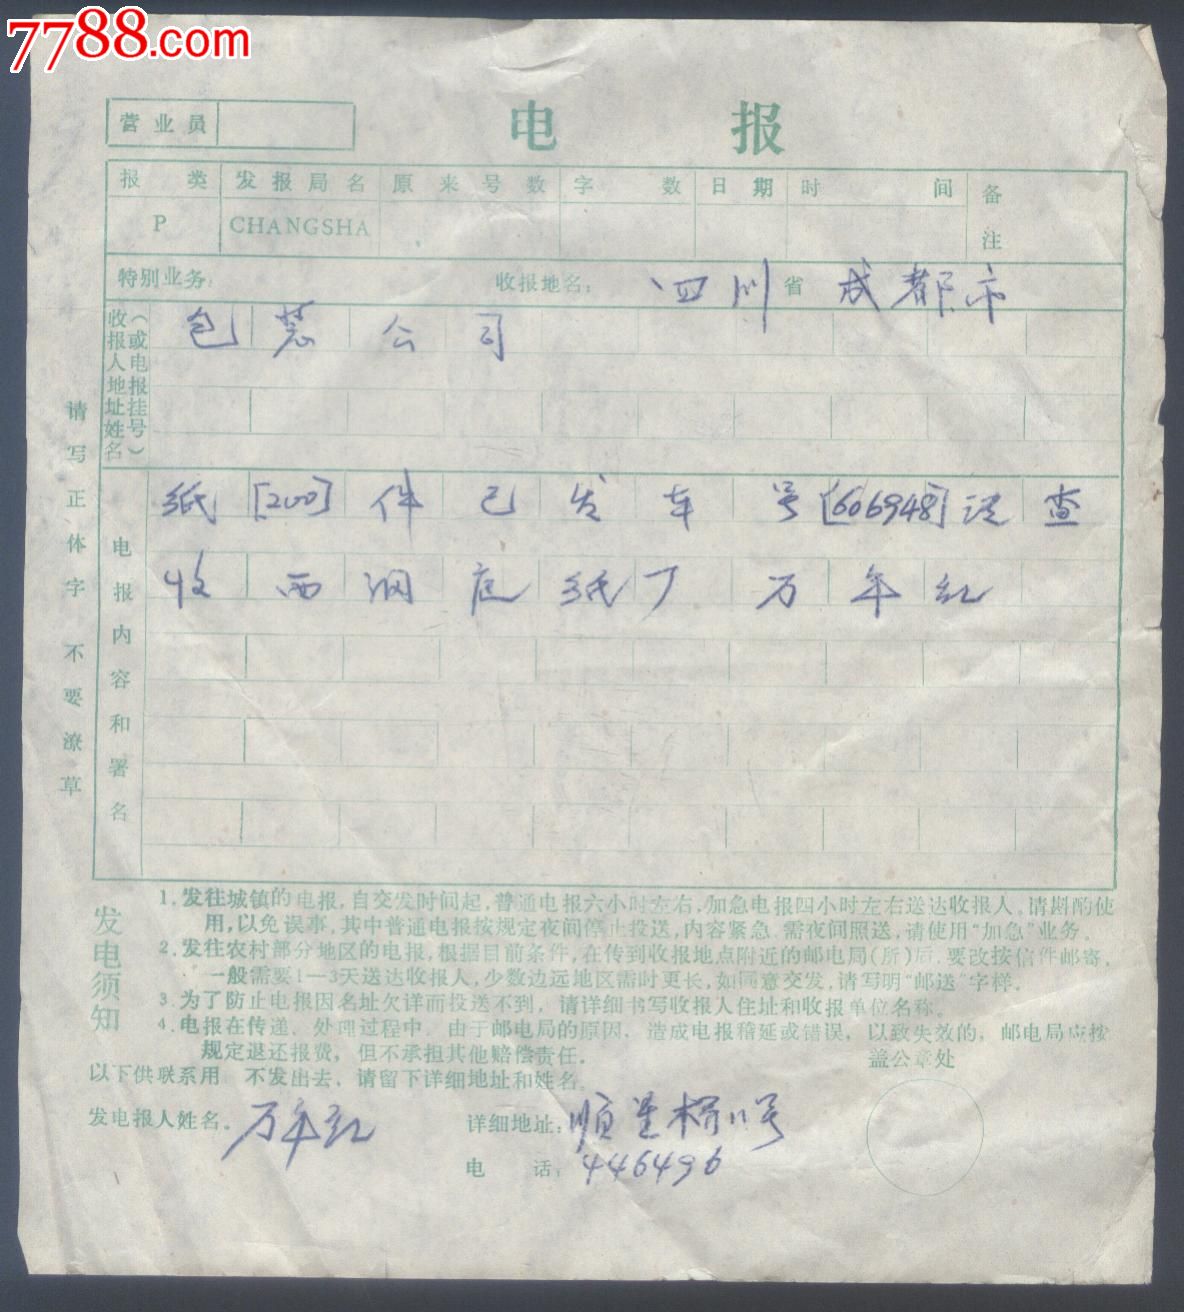 7788.com
营业员
电报
报类 发报局名 原来号数 字数 日期 时间 备注
P CHANGSHA
特别业务: 收报地名: 四川省成都市
收报人地址姓名(或电报挂号)
包装公司
请写正体字 不要潦草
电报内容和署名
纸[200]件已发车号[606948]请查
收西洞庭纸厂万年红
发电须知
1.发往城镇的电报,自交发时间起,普通电报六小时左右,加急电报四小时左右送达收报人。请斟酌使
用,以免误事,其中普通电报按规定夜间停止投送,内容紧急、需夜间照送,请使用“加急”业务。
2.发往农村部分地区的电报,根据目前条件,在传到收报地点附近的邮电局(所)后,要改按信件邮寄,
一般需要1—3天送达收报人,少数边远地区需时更长,如同意交发,请写明“邮送”字样。
3.为了防止电报因名址欠详而投送不到,请详细书写收报人住址和收报单位名称。
4.电报在传递、处理过程中,由于邮电局的原因,造成电报稽延或错误,以致失效的,邮电局应按
规定退还报费,但不承担其他赔偿责任。
盖公章处
以下供联系用,不发出去,请留下详细地址和姓名。
发电报人姓名。万年红 详细地址:顺星桥11号
电话:446496